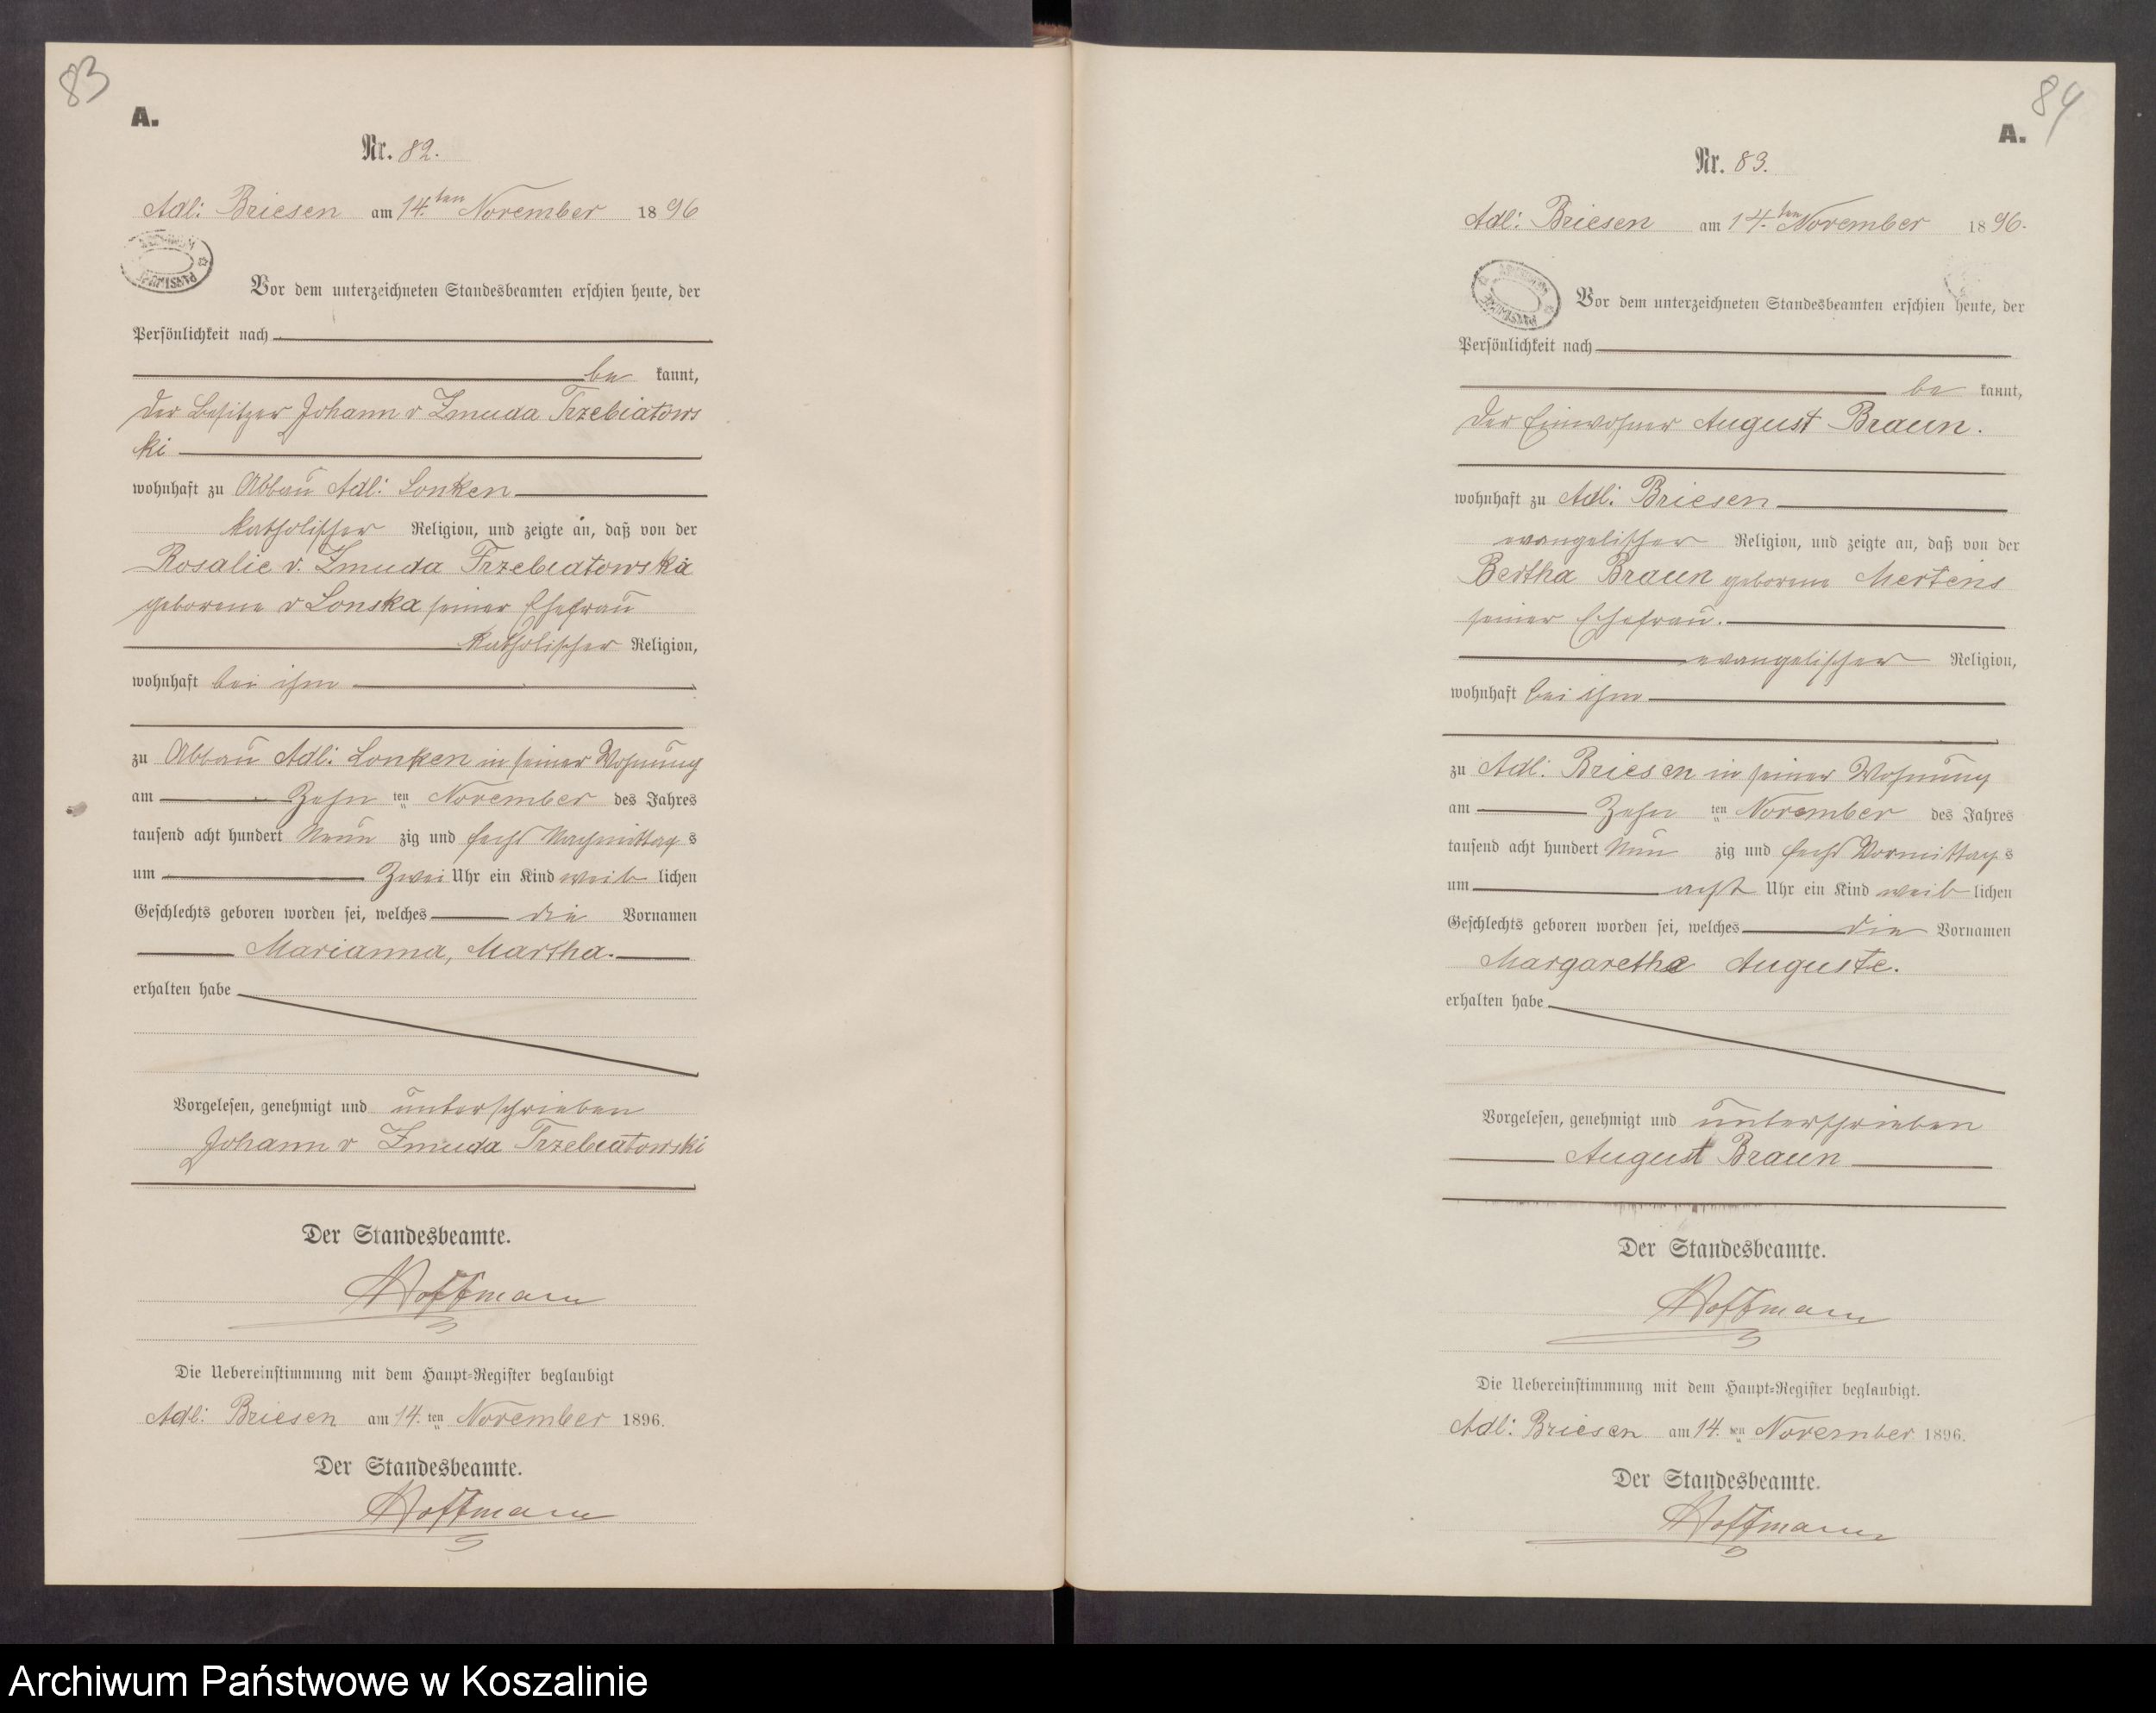 83
A.
Nr. 82.
Adl: Briesen am 14.ten November 1896
Vor dem unterzeichneten Standesbeamten erschien heute, der
Persönlichkeit nach
be kannt,
der Besitzer Johann v Zmuda Trzebiatows
ki
wohnhaft zu Abbau Adl: Lonken
katholischer Religion, und zeigte an, daß von der
Rosalie v. Zmuda Trzebiatowska
geborene v Lonska seiner Ehefrau
katholischer Religion,
wohnhaft bei ihm
zu Abbau Adl: Lonken in seiner Wohnung
am Zehn ten November des Jahres
tausend acht hundert Neun zig und sechs Nachmittag s
um Zwei Uhr ein Kind weib lichen
Geschlechts geboren worden sei, welches die Vornamen
Marianna, Martha.
erhalten habe
Vorgelesen, genehmigt und unterschrieben
Johann v Zmuda Trzebiatowski
Der Standesbeamte.
Hoffmann
Die Uebereinstimmung mit dem Haupt-Register beglaubigt
Adl: Briesen am 14. ten November 1896.
Der Standesbeamte.
Hoffmann
84
A.
Nr. 83.
Adl: Briesen am 14.ten November 1896.
Vor dem unterzeichneten Standesbeamten erschien heute, der
Persönlichkeit nach
be kannt,
der Einwohner August Braun.
wohnhaft zu Adl: Briesen
evangelischer Religion, und zeigte an, daß von der
Bertha Braun geborene Mertens
seiner Ehefrau.
evangelischer Religion,
wohnhaft bei ihm
zu Adl: Briesen in seiner Wohnung
am Zehn ten November des Jahres
tausend acht hundert Neun zig und sechs Vormittag s
um acht Uhr ein Kind weib lichen
Geschlechts geboren worden sei, welches die Vornamen
Margarethe Auguste.
erhalten habe
Vorgelesen, genehmigt und unterschrieben
August Braun
Der Standesbeamte.
Hoffmann
Die Uebereinstimmung mit dem Haupt-Register beglaubigt.
Adl: Briesen am 14. ten November 1896.
Der Standesbeamte.
Hoffmann
Archiwum Państwowe w Koszalinie